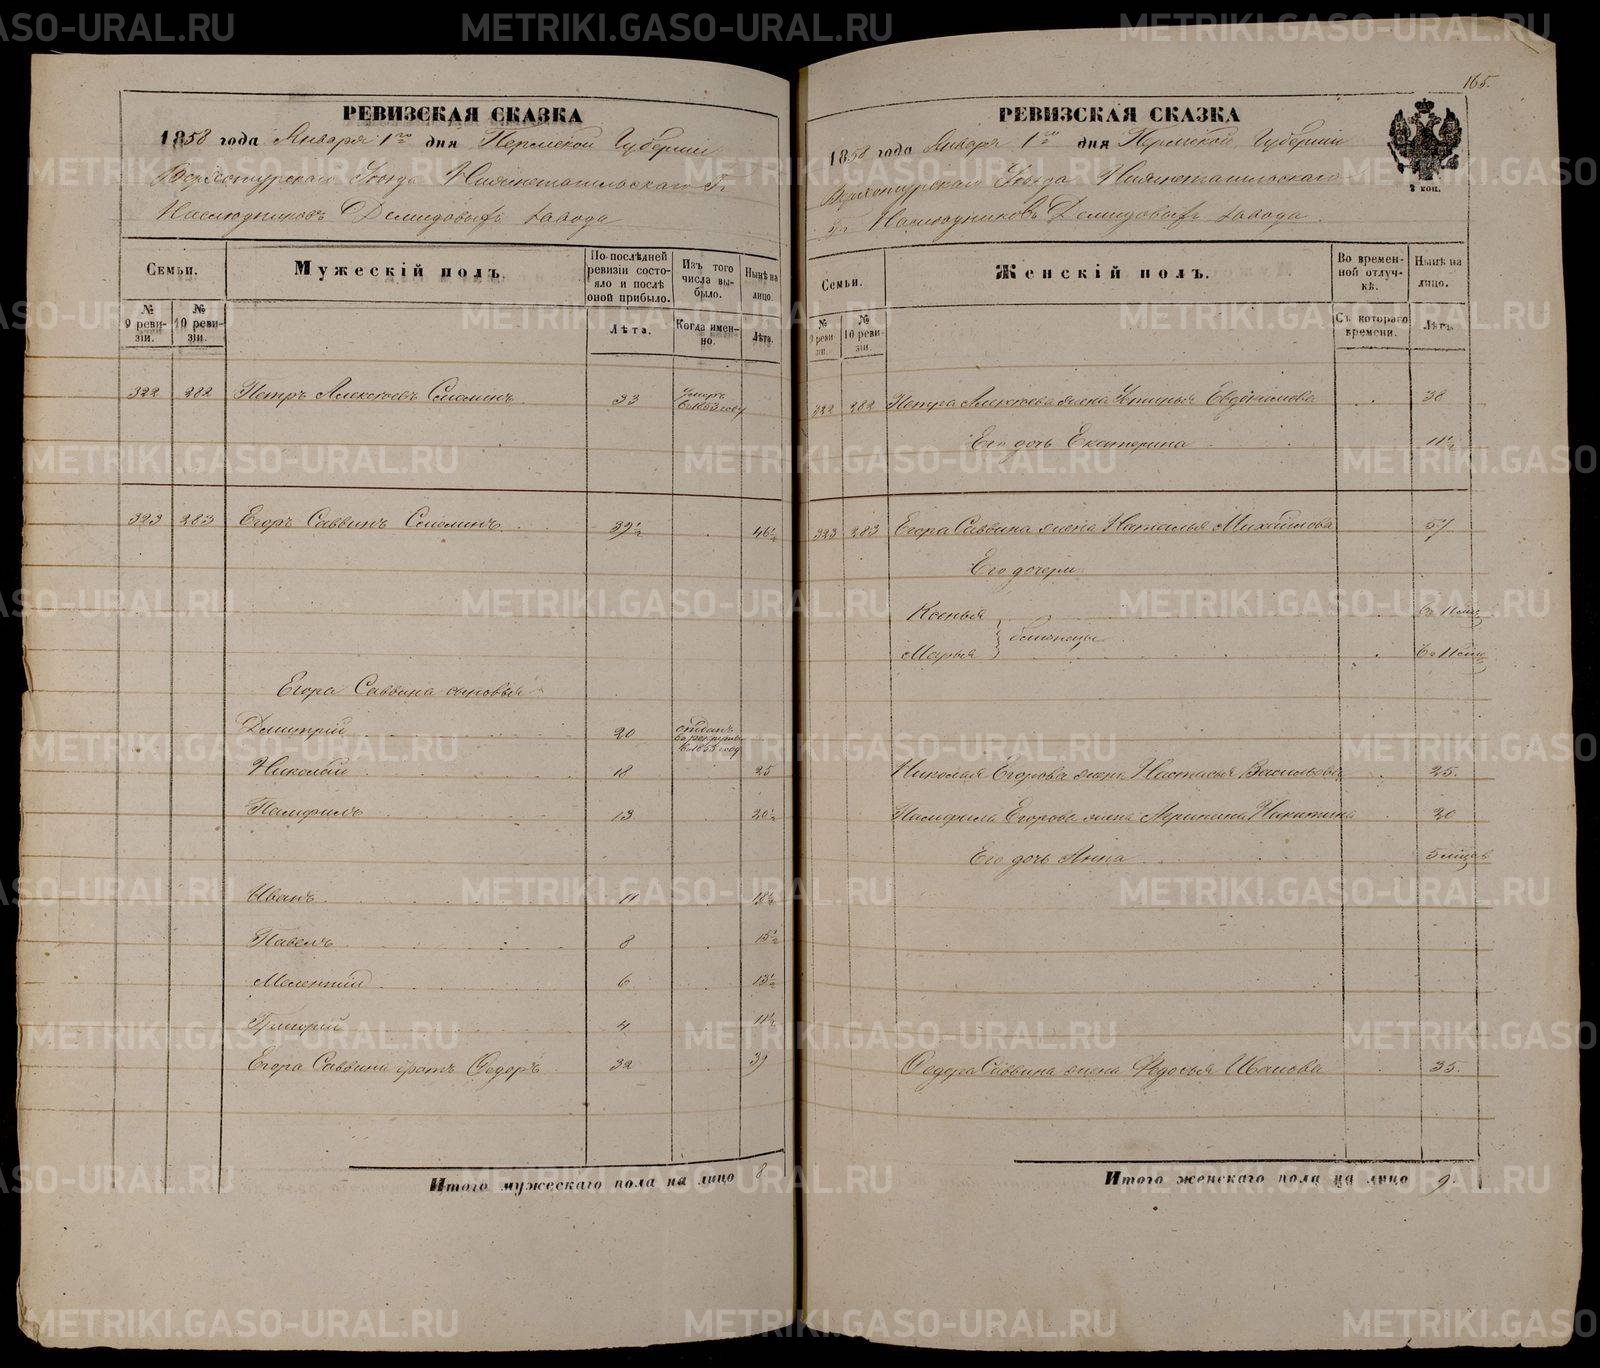 РЕВИЗСКАЯ СКАЗКА
1858 года Января 1го дня Пермской Губернии
Верхотурскаго Уезда Нижнетагильскаго Гг
Наследниковъ Демидовыхъ завода
Семьи.
Мужескій полъ.
По последней ревизіи состояло и после оной прибыло.
Изъ того числа выбыло.
Ныне на лицо.
№ 9 ревизіи.
№ 10 ревизіи.
Лѣта.
Когда именно.
Лѣта.
322 282 Петръ Алексеевъ Сломинъ 33 Умеръ въ 1853 году
323 283 Егоръ Саввинъ Сломинъ 39½ 46½
Егора Саввина сыновья
Дмитрій 20 отданъ въ рекруты въ 1853 году
Николай 18 25
Памфилъ 13 20½
Иванъ 11 18½
Павелъ 8 15½
Мелентій 6 13½
Григорій 4 11½
Егора Саввина братъ Федоръ 32 39
Итого мужескаго пола на лицо 8
165.
РЕВИЗСКАЯ СКАЗКА
1858 года Января 1го дня Пермской Губерніи
Верхотурскаго Уезда Нижнетагильскаго
Гг Наследниковъ Демидовыхъ завода
2 коп.
Семьи.
Женскій полъ.
Во временной отлучкѣ.
Нынѣ на лицо.
№ 9 ревизіи.
№ 10 ревизіи.
Съ котораго времени.
Лѣта.
322 282 Петра Алексеева жена Устинья Евдокимова 38
Его дочь Екатерина 11½
323 283 Егора Саввина жена Наталья Михайлова 57
Его дочери
Ксенья
Марья близнецы
Николая Егорова жена Настасья Васильева 25.
Памфила Егорова жена Агрипина Никитина 20
Его дочь Анна 5 мцев
Федора Саввина жена Федосья Иванова 35.
Итого женскаго пола на лицо 9.
METRIKI.GASO-URAL.RU